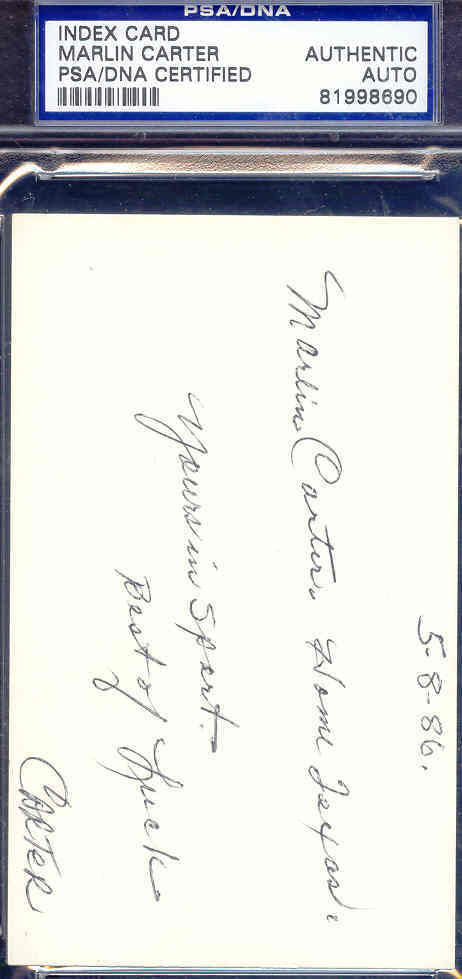 PSA/DNA
INDEX CARD
MARLIN CARTER AUTHENTIC
PSA/DNA CERTIFIED AUTO
81998690
5-8-86.
Marlin Carter. Home Texas.
Yours in Sport.-
Best of Luck
CARTER